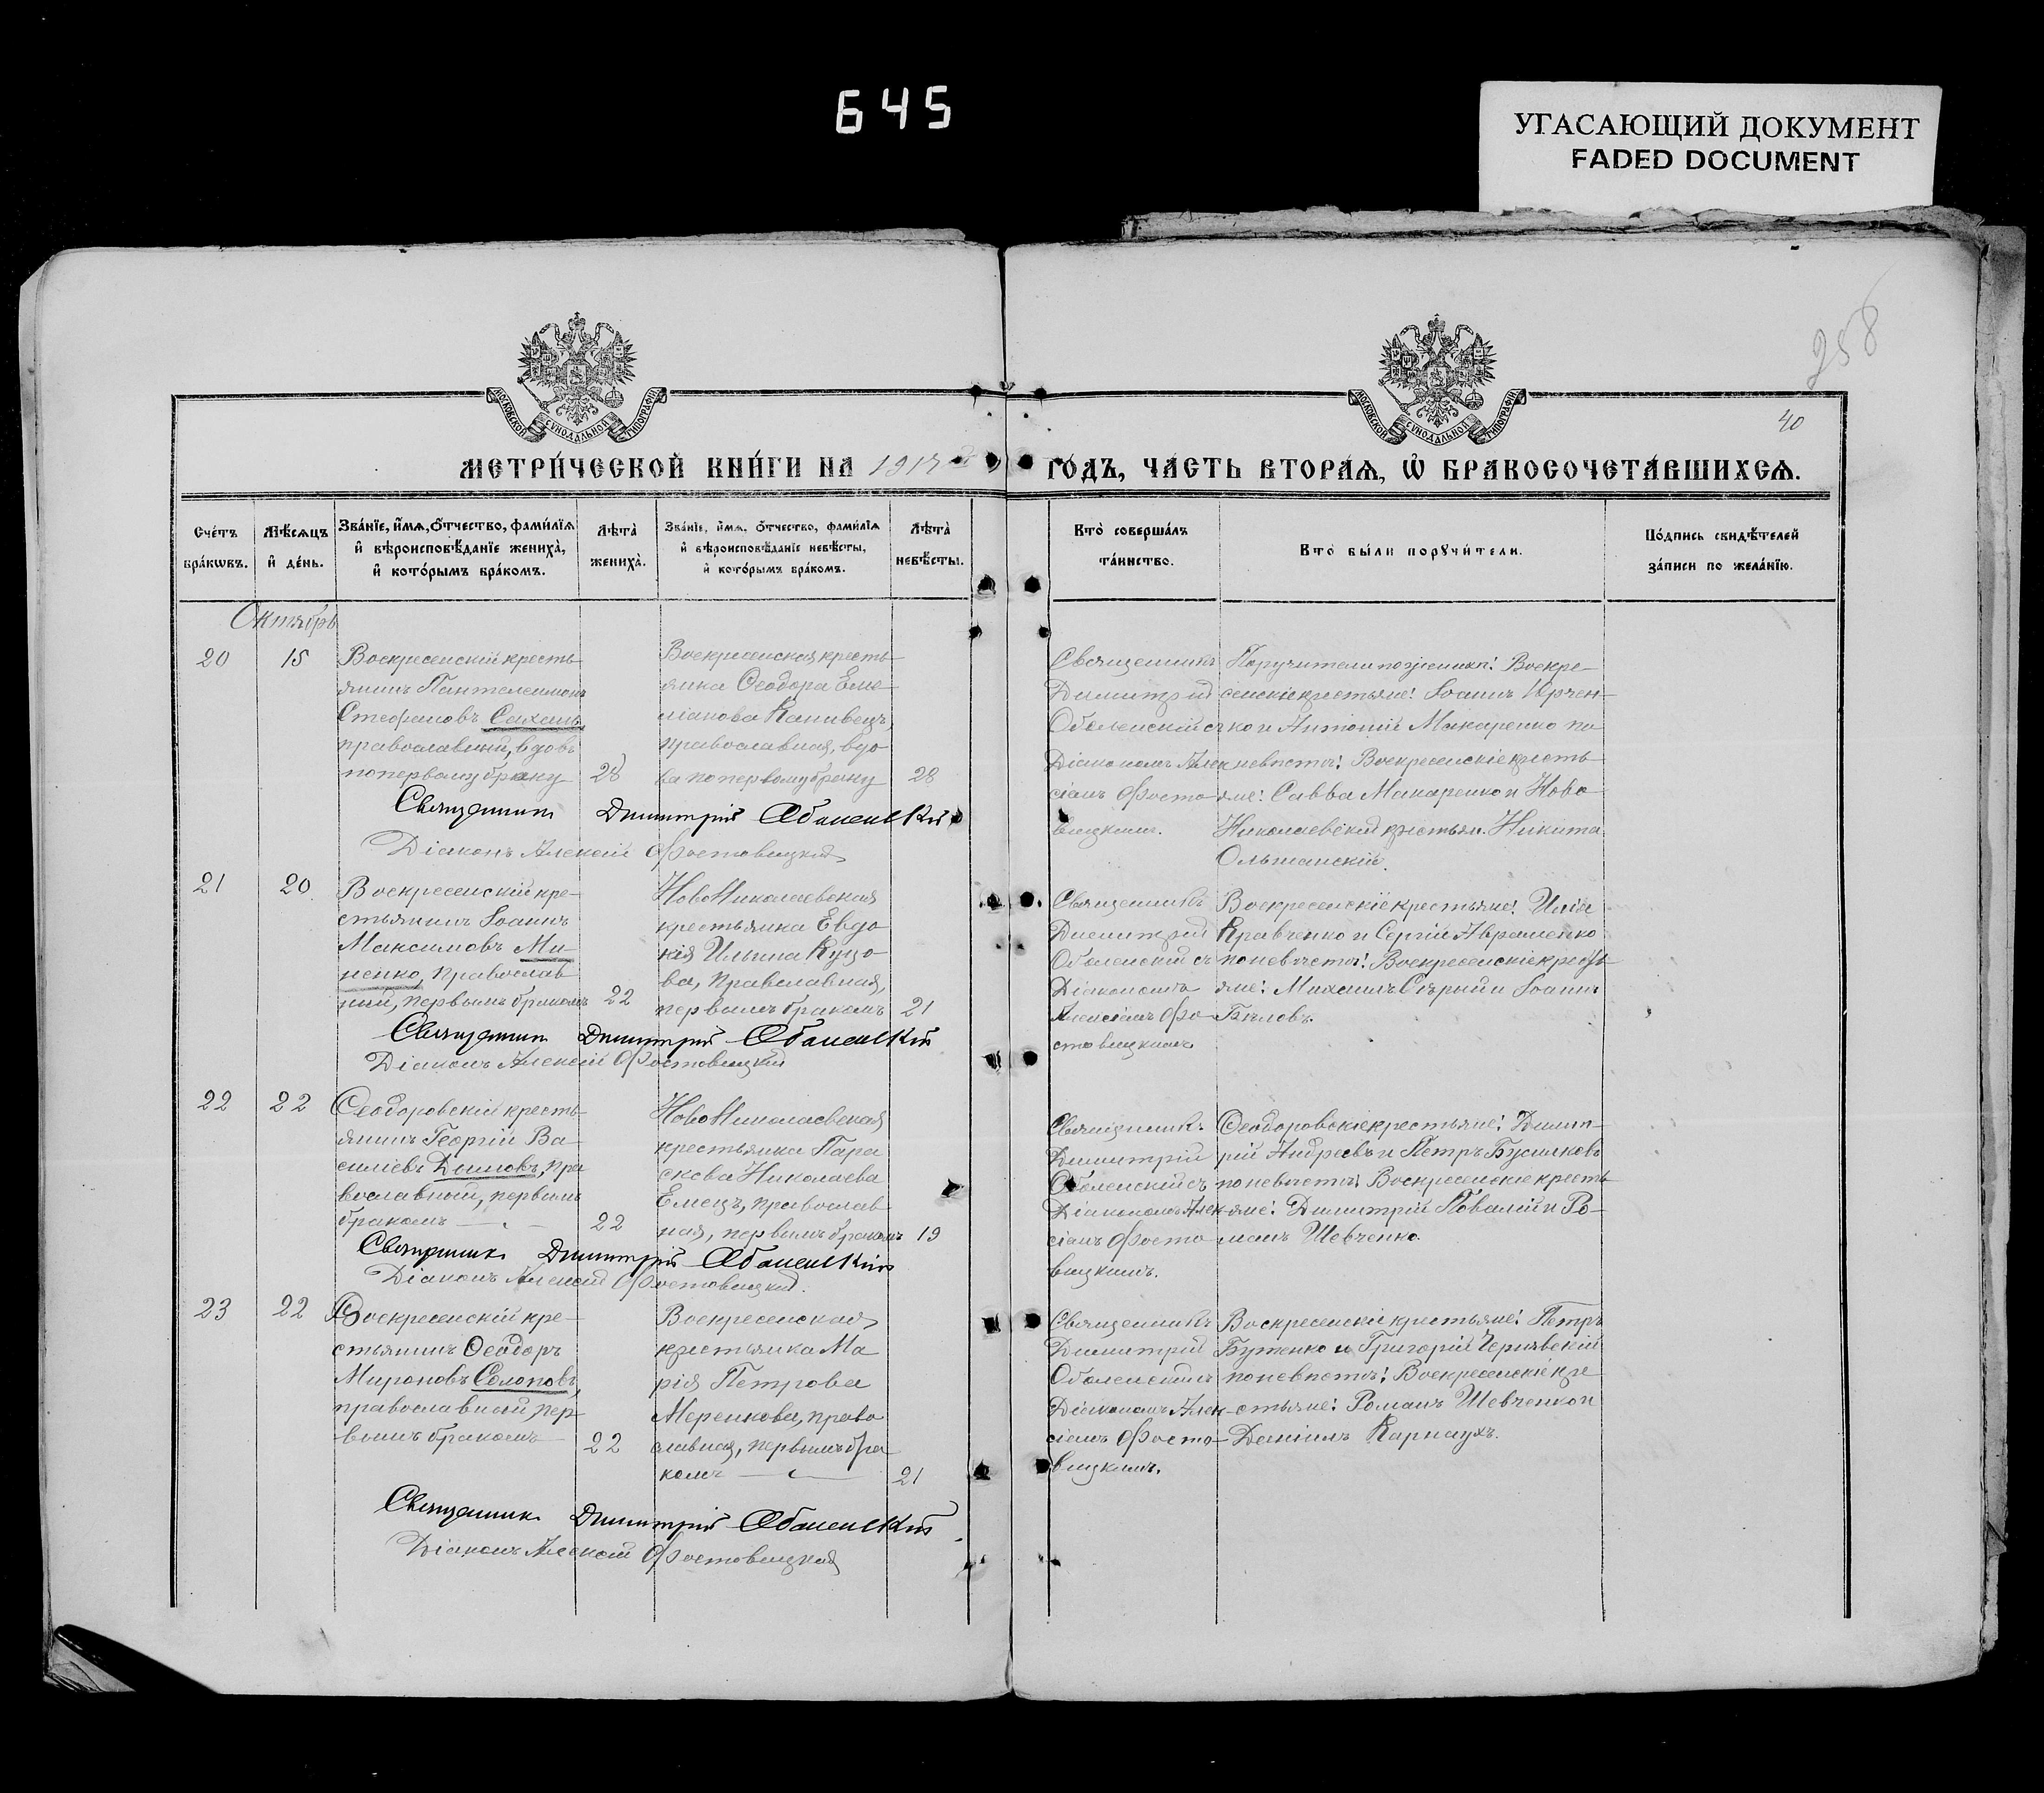 645
УГАСАЮЩИЙ ДОКУМЕНТ
FADED DOCUMENT
258
40
МОСКОВСКОЙ СУНОДАЛЬНОЙ ТИПОГРАФІИ
МОСКОВСКОЙ СУНОДАЛЬНОЙ ТИПОГРАФІИ
МЕТРИ́ЧЕСКОЙ КНИ́ГИ НА 1917
ГО́ДЪ, ЧА́СТЬ ВТОРА́Ѧ, Ѡ҆ БРАКОСОЧЕТА́ВШИХСѦ.
Сче́тъ
бра́кѡвъ.
Мѣ́сѧцъ
и҆ де́нь.
Зва́нїе, и҆́мѧ, ѻ҆́тчество, фами́лїѧ
и҆ вѣроисповѣ́данїе жениха̀,
и҆ кото́рымъ бра́комъ.
Лѣта̀
жениха̀.
Зва́нїе, и҆́мѧ, ѻ҆́тчество, фами́лїѧ
и҆ вѣроисповѣ́данїе невѣ́сты,
и҆ кото́рымъ бра́комъ.
Лѣта̀
невѣ́сты.
Кто̀ соверша́лъ
та́инство.
Кто̀ бы́ли порꙋчи́тели.
По́дпись свидѣ́телей
за́писи по жела́нїю.
Октябрь
20
15
Воскресенскій кресть-
янинъ Пантелеимонъ
Стефановъ Сахань,
православный, вдовъ
по первому браку
28
Воскресенская кресть-
янка Ѳеодора Еме-
ліанова Канивецъ,
православная, вдо
ва по первому браку
28
Священникъ
Димитрій
Оболенскій съ
Діакономъ Алек
сіемъ Фосто
вицкимъ.
Поручители по женихѣ: Воскре-
сенскіе крестьяне: Іоаннъ Юрчен-
ко и Антоній Макаренко по
невѣстѣ: Воскресенскіе кресть-
яне: Савва Макаренко и Ново
Николаевскій крестьян. Никита
Ольшанскій.
Священникъ Димитрій Оболенскій
Діаконъ Алексій Фостовицкій
21
20
Воскресенскій кре-
стьянинъ Іоаннъ
Максимовъ Ми
ненко, православ
ный, первымъ бракомъ
22
НовоНиколаевская
крестьянка Евдо
кія Ильина Куцо
ва, православная,
первымъ бракомъ
21
Священникъ
Димитрій
Оболенскій съ
Діакономъ
Алексіемъ Фо-
стовицкимъ
Воскресенскіе крестьяне: Илія
Кравченко и Сергій Авраменко
по невѣстѣ: Воскресенскіе кресть
яне: Михаилъ Сѣрый и Іоаннъ
Бѣловъ.
Священникъ Димитрій Оболенскій
Діаконъ Алексій Фостовицкій
22
22
Ѳеодоровскій кресть-
янинъ Георгій Ва-
силіевъ Дымовъ, пра
вославный, первымъ
бракомъ
22
НовоНиколаевская
крестьянка Пара
скева Николаева
Емецъ, православ
ная, первымъ бракомъ
19
Священникъ
Димитрій
Оболенскій съ
Діакономъ Алек
сіемъ Фосто
вицкимъ.
Ѳеодоровскіе крестьяне: Димит-
рій Андреевъ и Петръ
по невѣстѣ: Воскресенскіе кресть
яне: Димитрій Повалій и Ро-
манъ Шевченко.
Священникъ Димитрій Оболенскій
Діаконъ Алексій Фостовицкій.
23
22
Воскресенскій кре-
стьянинъ Ѳеодоръ
Мироновъ Солоповъ,
православный, пер-
вымъ бракомъ
22
Воскресенская
крестьянка Ма
рія Петрова
Меренкова, право
славная, первымъ бра
комъ
21
Священникъ
Димитрій
Оболенскій
Діакономъ Алек-
сіемъ Фосто-
вицкимъ.
Воскресенскіе крестьяне: Петръ
Бутенко и Григорій Чернявскій
по невѣстѣ: Воскресенскіе кре
стьяне: Романъ Шевченко и
Даніилъ Карнаухъ.
Священникъ Димитрій Оболенскій
Діаконъ Алексій Фостовицкій